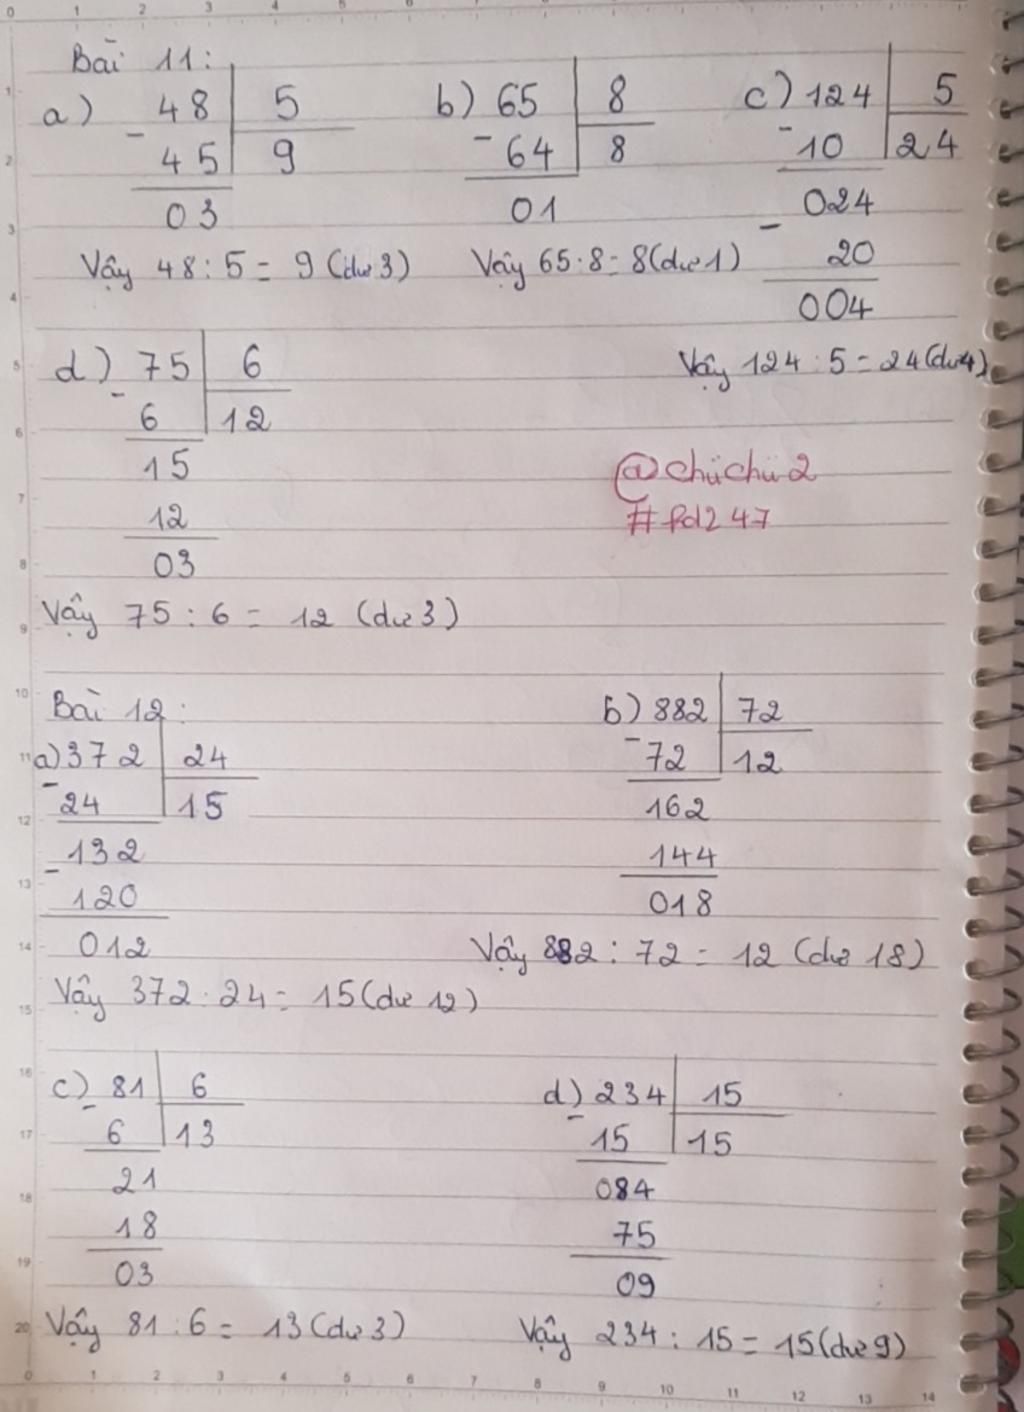 Bài 11:
a) 48 | 5
- 45 | 9
03
Vậy 48 : 5 = 9 (dư 3)
b) 65 | 8
- 64 | 8
01
Vậy 65 : 8 = 8 (dư 1)
c) 124 | 5
- 10 | 24
024
- 20
004
Vậy 124 : 5 = 24 (dư 4)
d) 75 | 6
- 6 | 12
15
12
03
Vậy 75 : 6 = 12 (dư 3)
@chüchü2
#fd247
Bài 12:
a) 372 | 24
- 24 | 15
132
- 120
012
Vậy 372 : 24 = 15 (dư 12)
b) 882 | 72
- 72 | 12
162
144
018
Vậy 882 : 72 = 12 (dư 18)
c) 81 | 6
- 6 | 13
21
18
03
Vậy 81 : 6 = 13 (dư 3)
d) 234 | 15
- 15 | 15
084
75
09
Vậy 234 : 15 = 15 (dư 9)